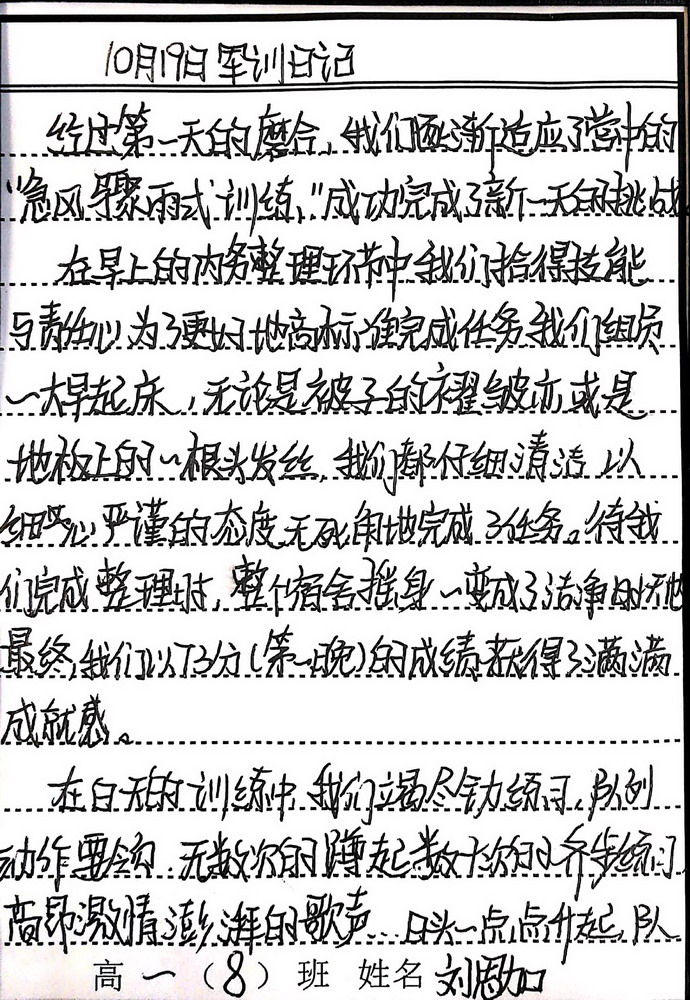 10月19日 军训日记
经过第一天的磨合，我们逐渐适应了营中的
“急风骤雨式训练，”成功完成了新一天的挑战
在早上的内务整理环节中我们拾得技能
与责任心为了更好地高标准完成任务我们组员
一大早起床，无论是被子的褶皱亦或是
地板上的一根头发丝，我们都仔细清洁，以
细心严谨的态度无死角地完成了任务。待我
们完成整理时，整个宿舍摇身一变成了洁净的天地
最终，我们以73分（第一晚）的成绩获得了满满
成就感。
在白天的训练中，我们竭尽全力练习，队列
动作要领，无数次的蹲起数十次的齐步练习
高昂激情澎湃的歌声…日头一点点升起，队
高一（8）班 姓名 刘思加